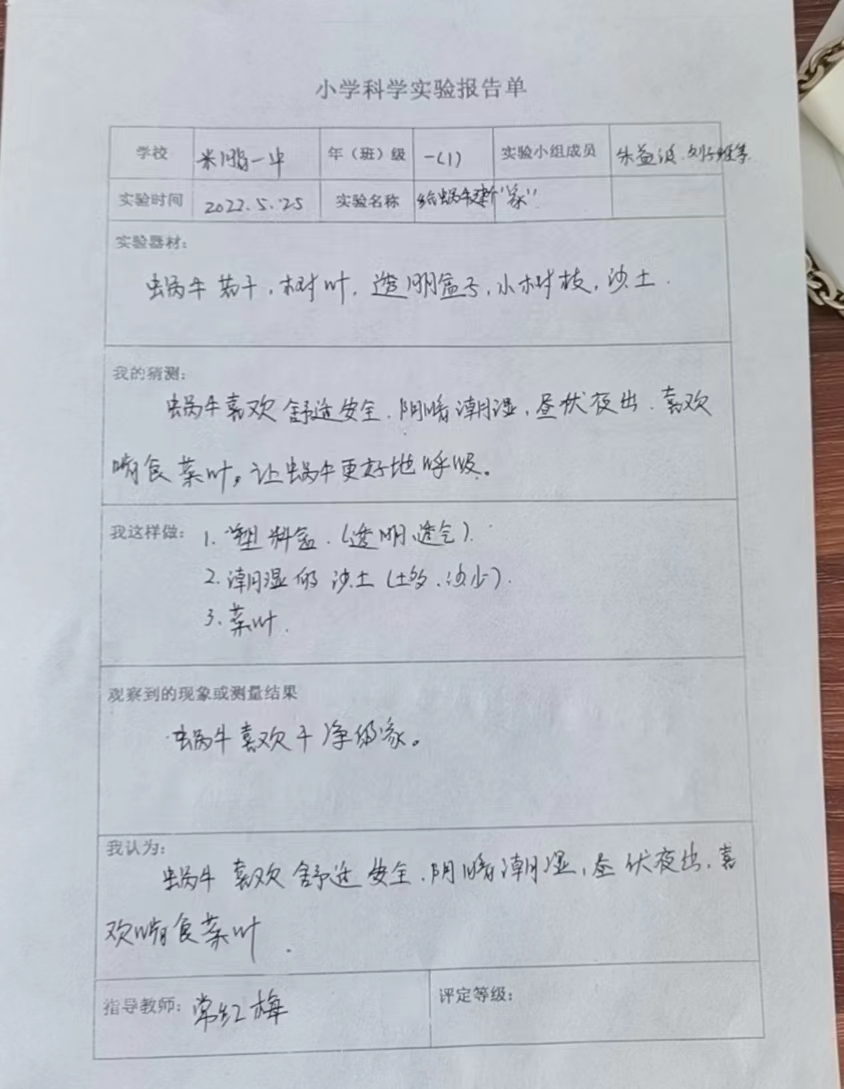 小学科学实验报告单
学校 米脂一中 年（班）级 一(1) 实验小组成员 朱益
实验时间 2022.5.25 实验名称 给蜗牛建个"家"
实验器材：
蜗牛若干，树叶，透明盒子，小树枝，沙土.
我的猜测：
蜗牛喜欢舒适安全.阴暗潮湿，昼伏夜出.喜欢
啃食菜叶。让蜗牛更好地呼吸。
我这样做： 1. 塑料盒.（透明.透气）.
2. 潮湿的沙土（土多.沙少）.
3. 菜叶.
观察到的现象或测量结果
蜗牛喜欢干净的家。
我认为：
蜗牛喜欢舒适安全.阴暗潮湿，昼伏夜出.喜
欢啃食菜叶.
指导教师： 常红梅 评定等级：